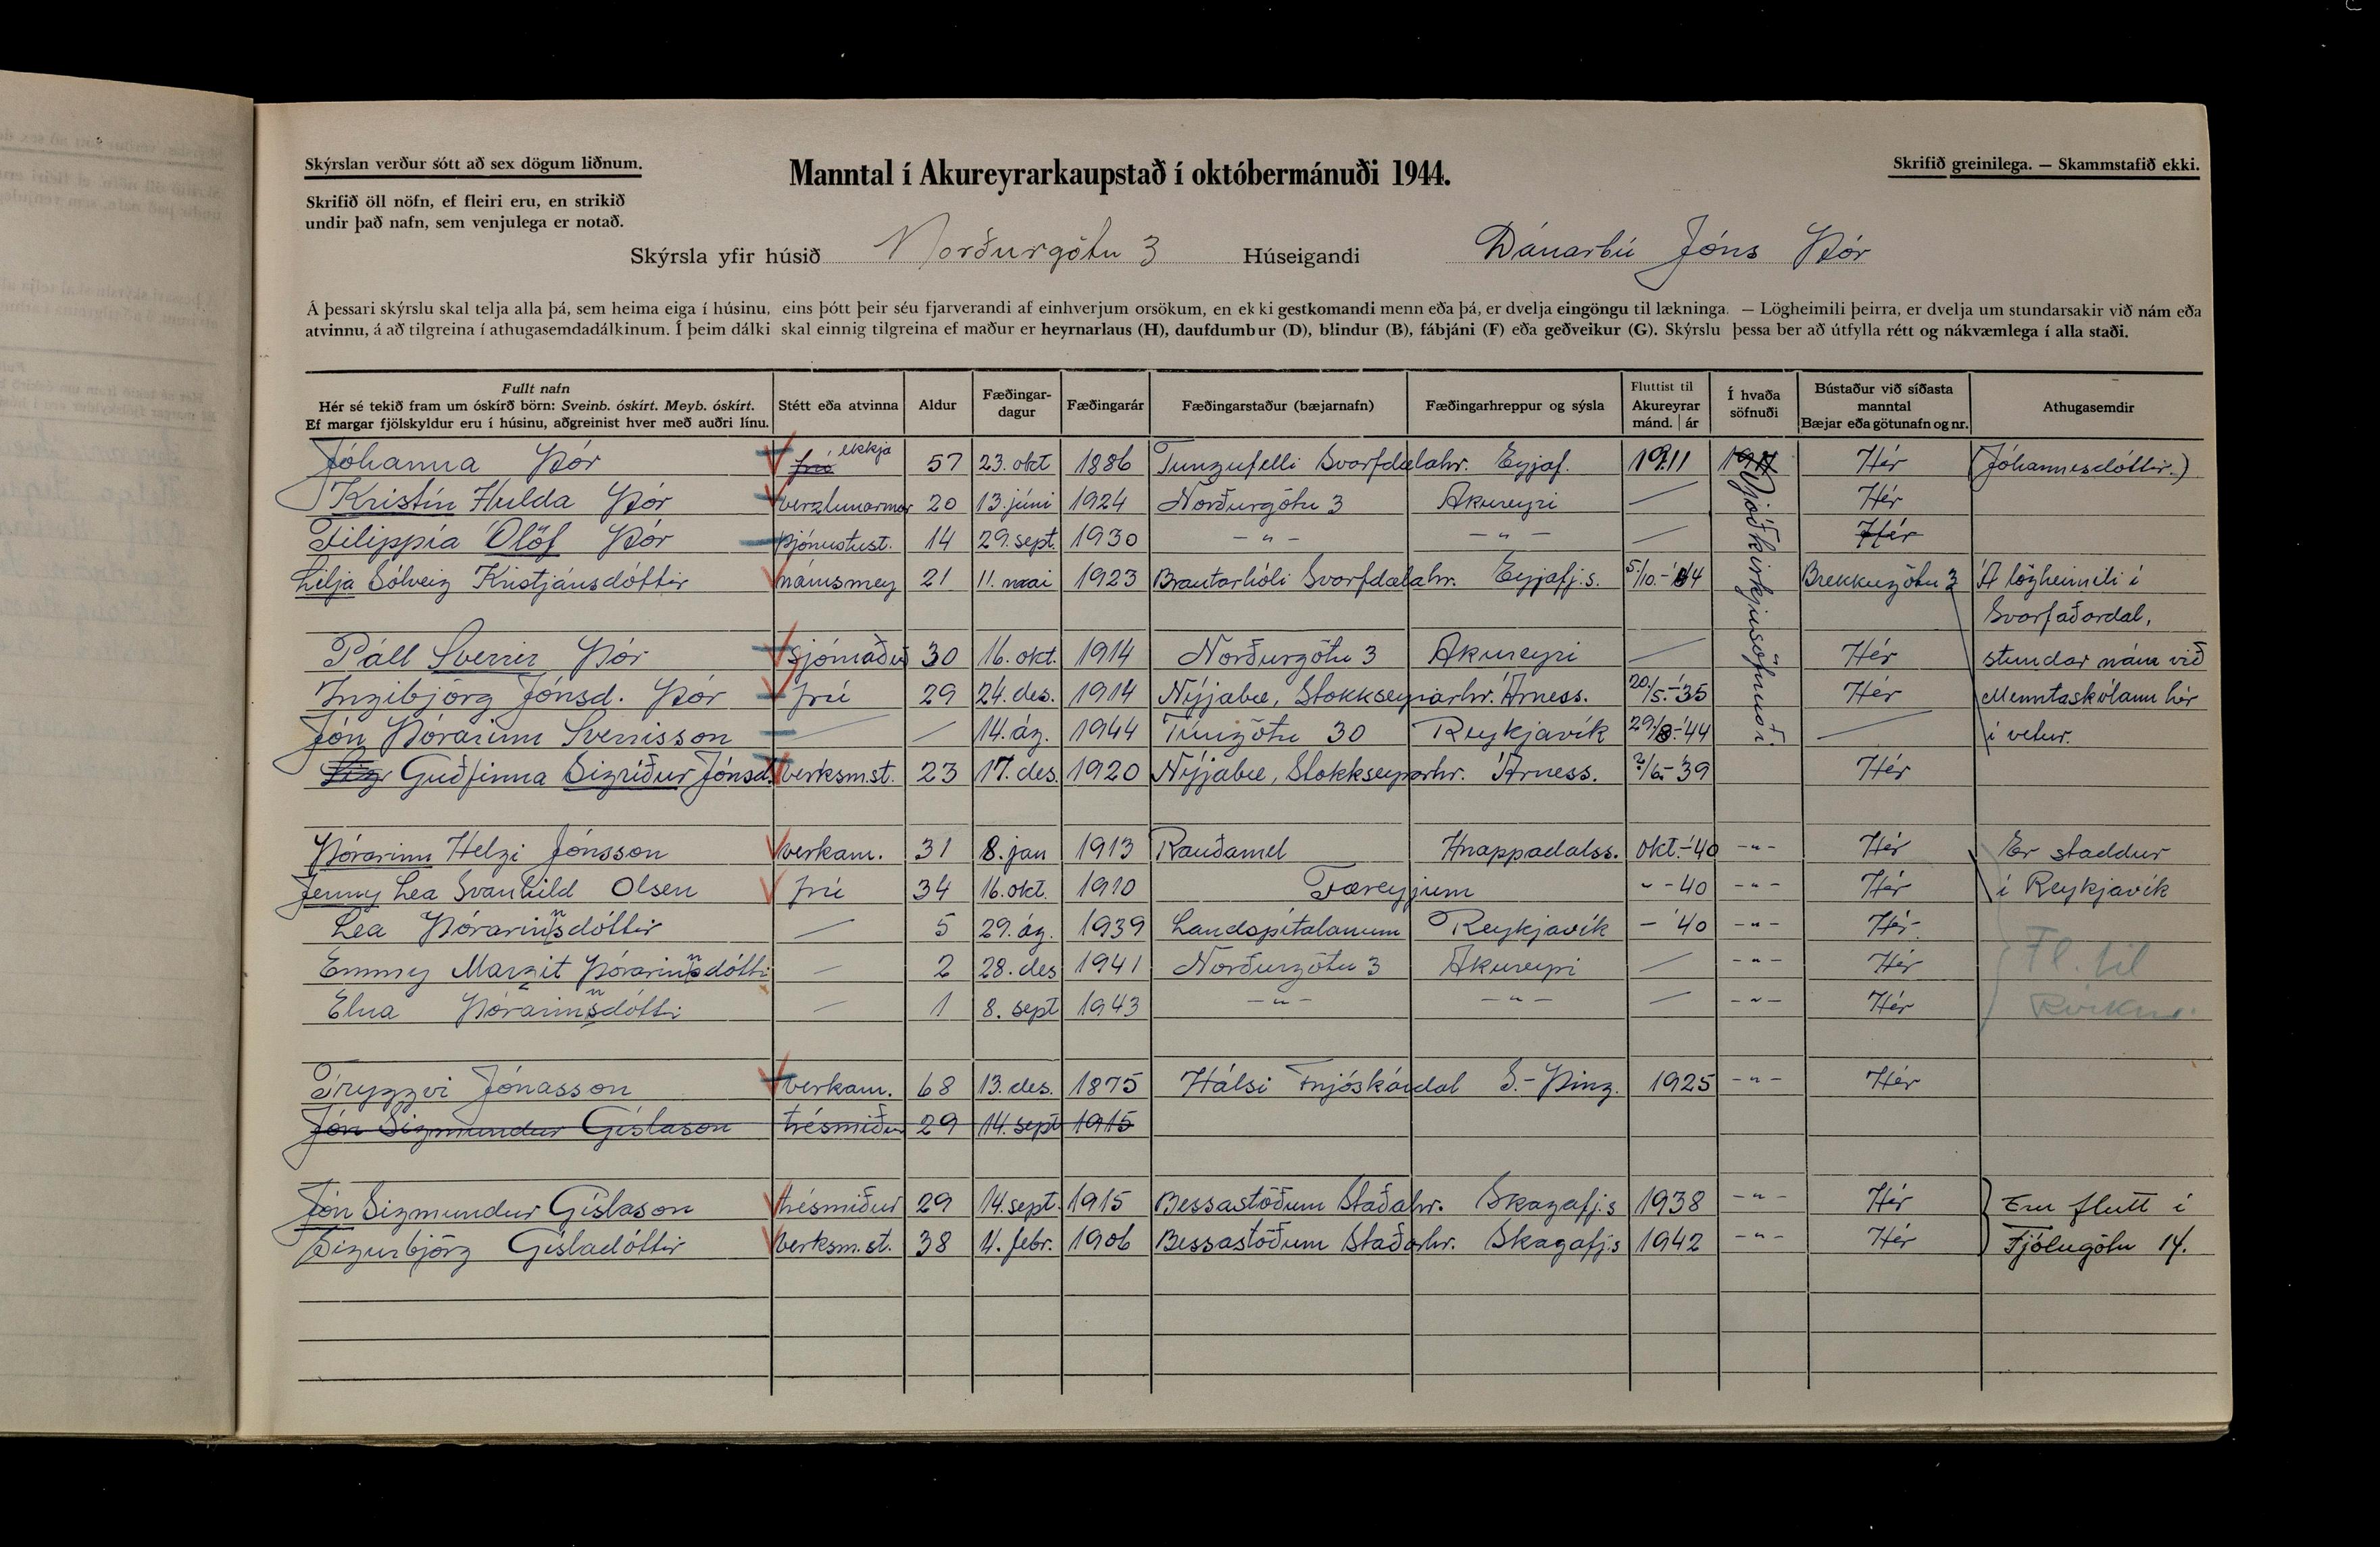 Skýrslan verður sótt að sex dögum liðnum.
Manntal í Akureyrarkaupstað í októbermánuði 1944.
Skrifið greinilega. — Skammstafið ekki.
Skrifið öll nöfn, ef fleiri eru, en strikið
undir það nafn, sem venjulega er notað.
Skýrsla yfir húsið Norðurgötu 3 Húseigandi Dánarbú Jóns Þór
Á þessari skýrslu skal telja alla þá, sem heima eiga í húsinu, eins þótt þeir séu fjarverandi af einhverjum orsökum, en ekki gestkomandi menn eða þá, er dvelja eingöngu til lækninga. — Lögheimili þeirra, er dvelja um stundarsakir við nám eða
atvinnu, á að tilgreina í athugasemdadálkinum. Í þeim dálki skal einnig tilgreina ef maður er heyrnarlaus (H), daufdumbur (D), blindur (B), fábjáni (F) eða geðveikur (G). Skýrslu þessa ber að útfylla rétt og nákvæmlega í alla staði.
Fullt nafn
Hér sé tekið fram um óskírð börn: Sveinb. óskírt. Meyb. óskírt.
Ef margar fjölskyldur eru í húsinu, aðgreinist hver með auðri línu.
Stétt eða atvinna
Aldur
Fæðingar-
dagur
Fæðingarár
Fæðingarstaður (bæjarnafn)
Fæðingarhreppur og sýsla
Fluttist til
Akureyrar
mánd. | ár
Í hvaða
söfnuði
Bústaður við síðasta
manntal
Bæjar eða götunafn og nr.
Athugasemdir
Jóhanna Þór frú ekkja 57 23. okt 1886 Tungufelli Svarfdælahr. Eyjaf. 1911 Hér (Jóhannesdóttir.)
Kristín Hulda Þór verzlunarmær 20 13. júni 1924 Norðurgötu 3 Akureyri — Hér
Filippía Ólöf Þór þjónustust. 14 29. sept. 1930 — " — — " — — Hér
Lilja Sólveig Kristjánsdóttir námsmey 21 11. maí 1923 Brautarhóli Svarfdælahr. Eyjafj.s. 5/10.-'44 Brekkugötu 3 Á lögheimili í
Svarfaðardal,
Páll Sverrir Þór sjómaður 30 16. okt. 1914 Norðurgötu 3 Akureyri — Hér stundar nám við
Ingibjörg Jónsd. Þór frú 29 24. des. 1914 Nýjabæ, Stokkseyrarhr. Árness. 20/5.-'35 Hér Menntaskólann hér
Jón Þórarinn Sverrisson — — 14. ág. 1944 Túngötu 30 Reykjavík 29/8-'44 — í vetur.
Þjóðkirkjusöfnuði
Sigr Guðfinna Sigríður Jónsd. verksm.st. 23 17. des. 1920 Nýjabæ, Stokkseyrarhr. Árness. ?/6.-'39 Hér
Þórarinn Helgi Jónsson verkam. 31 8. jan 1913 Rauðamel Hnappadalss. okt.-'40 -"- Hér Er staddur
Jenny Lea Svanhild Olsen frú 34 16. okt. 1910 Færeyjum " -40 -"- Hér í Reykjavík
Lea Þórarinsdóttir — 5 29. ág. 1939 Landspítalanum Reykjavík — '40 -"- Hér
Emmy Margit Þórarinsdótti 2 28. des 1941 Norðurgötu 3 Akureyri — -"- Hér Fl. til
Elna Þórarinsdótti — 1 8. sept 1943 -"- -"- — -"- Hér Rvíkur.
Tryggvi Jónasson verkam. 68 13. des. 1875 Hálsi Fnjóskárdal S.-Þing. 1925 -"- Hér
Jón Sigmundur Gíslason trésmiður 29 14. sept 1915
Jón Sigmundur Gíslason trésmiður 29 14. sept. 1915 Bessastöðum Staðahr. Skagafj.s 1938 -"- Hér Eru flutt í
Sigurbjörg Gísladóttir verksm.st. 38 4. febr. 1906 Bessastöðum Staðarhr. Skagafj.s 1942 -"- Hér Fjólugötu 14.